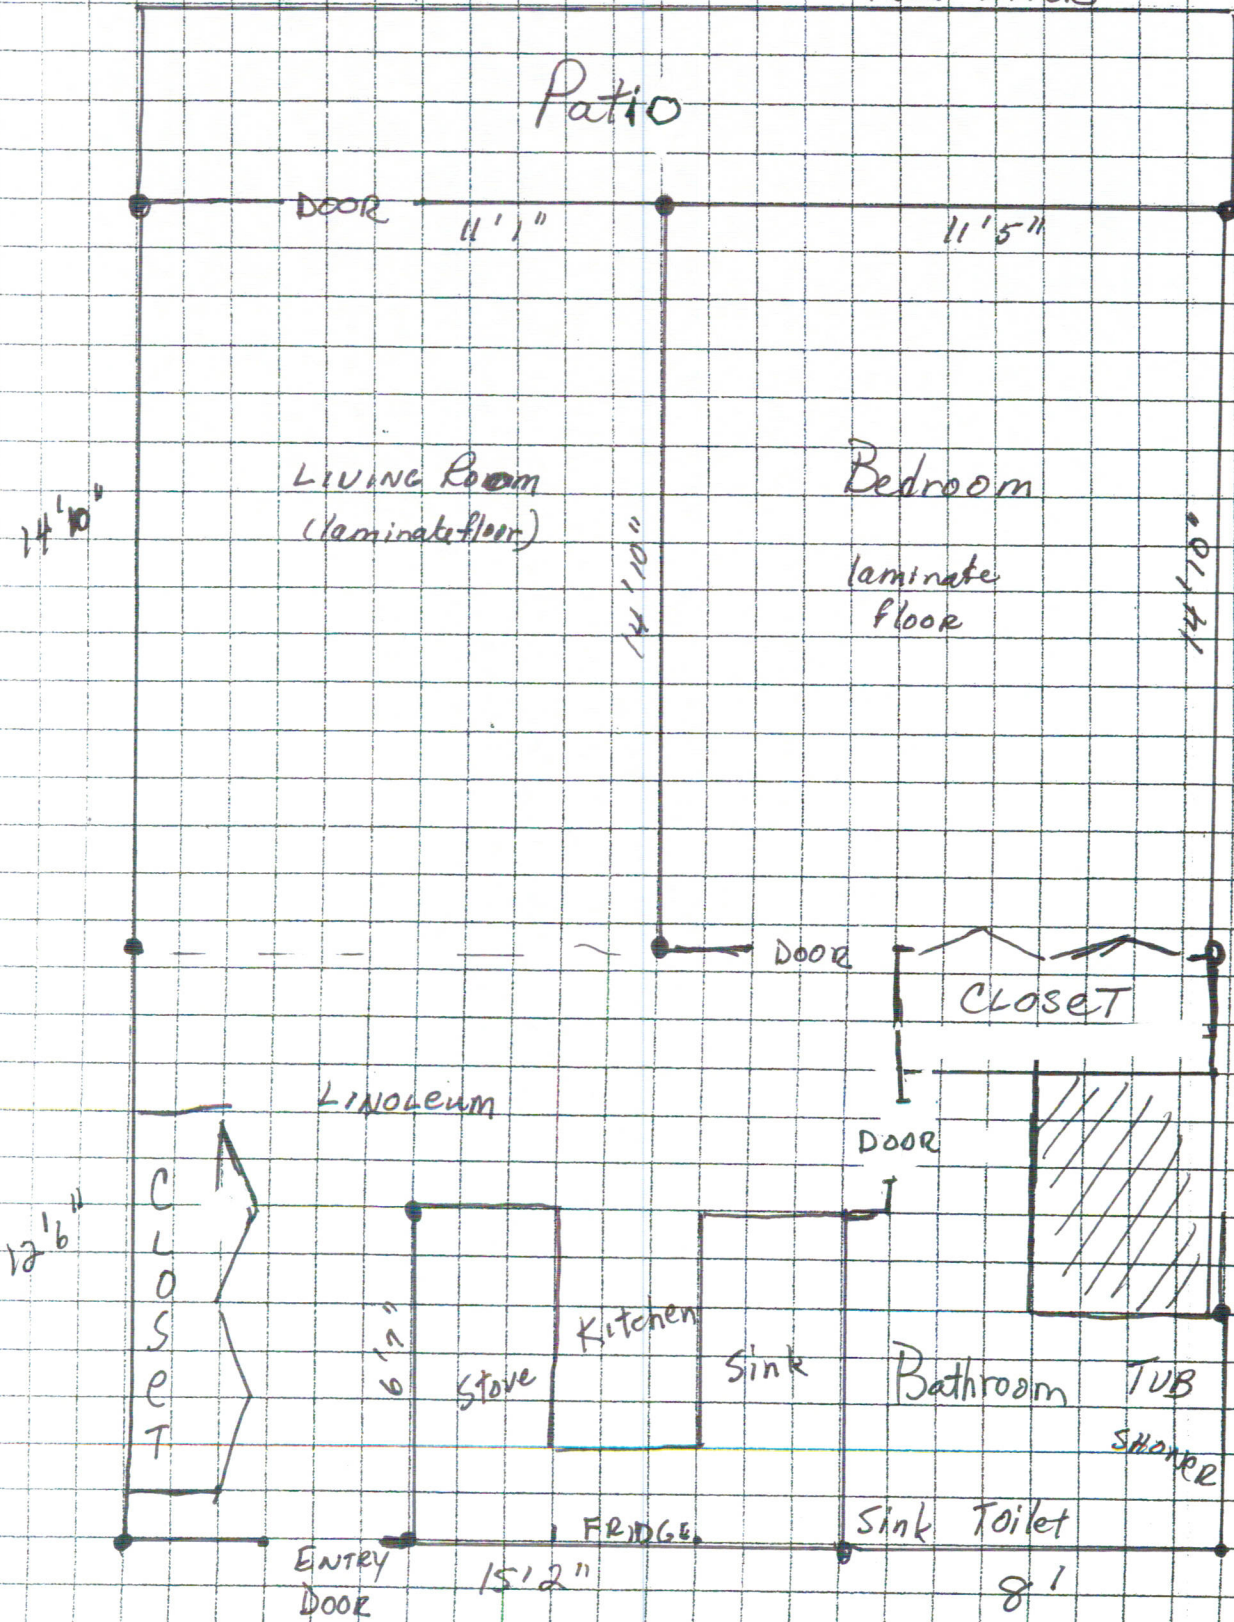 Patio
DOOR
11'1"
11'5"
LIVING Room
(laminate floor)
Bedroom
laminate
floor
14'10"
14'10"
14'10"
DOOR
CLOSET
LINOLEUM
DOOR
CLOSeT
12'6"
6'7"
Stove
Kitchen
Sink
Bathroom
TUB
SHOWER
FRIDGE
Sink Toilet
ENTRY
DOOR
15'2"
8'